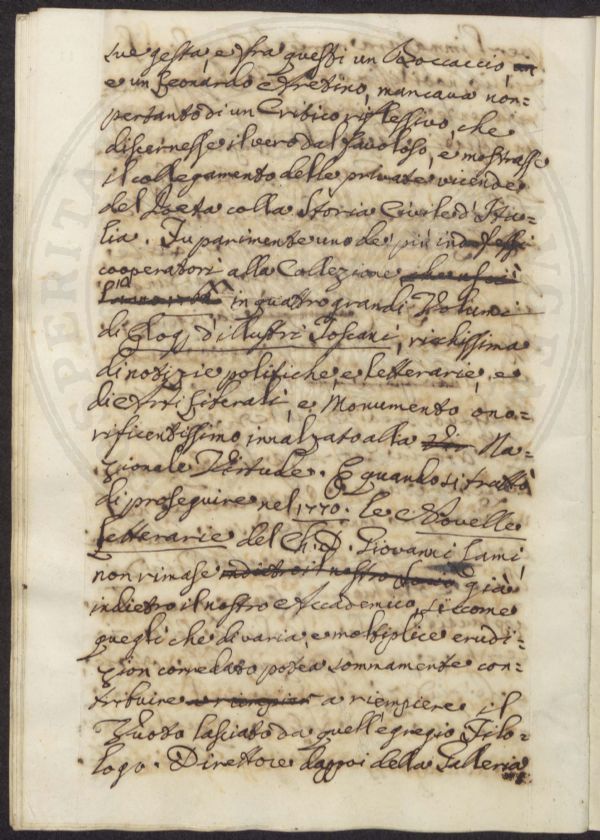 sue gesta, e fra questi un Boccaccio, un
e un Leonardo Aretino, mancava non=
pertanto di un Critico riflessivo, che
discernesse il vero dal favoloso, e mostrasse
il collegamento delle private vicende
del Poeta colla Storia Civile d'Ita=
lia. Fu parimente uno de' più indefessi
cooperatori alla Collezione che uscì
in quattro grandi Volumi
di Elogj d'illustri Toscani, ricchissima
di notizie politiche, e letterarie, e
di Arti Liberali, e Monumento ono=
rificentissimo innalzato alla Vir Na=
zionale Virtude. E quando si trattò
di proseguire nel 1770. le Novelle
Letterarie del Ch. D. Giovanni Lami,
non rimase indietro il nostro già
indietro il nostro Accademico, siccome
quegli che di varia, e moltiplice erudi=
zion corredato potea sommamente con=
tribuire a riempiere il
Vuoto lasciato da quell'egregio Filo=
logo. Direttore dappoi della Galleria
SPERITA